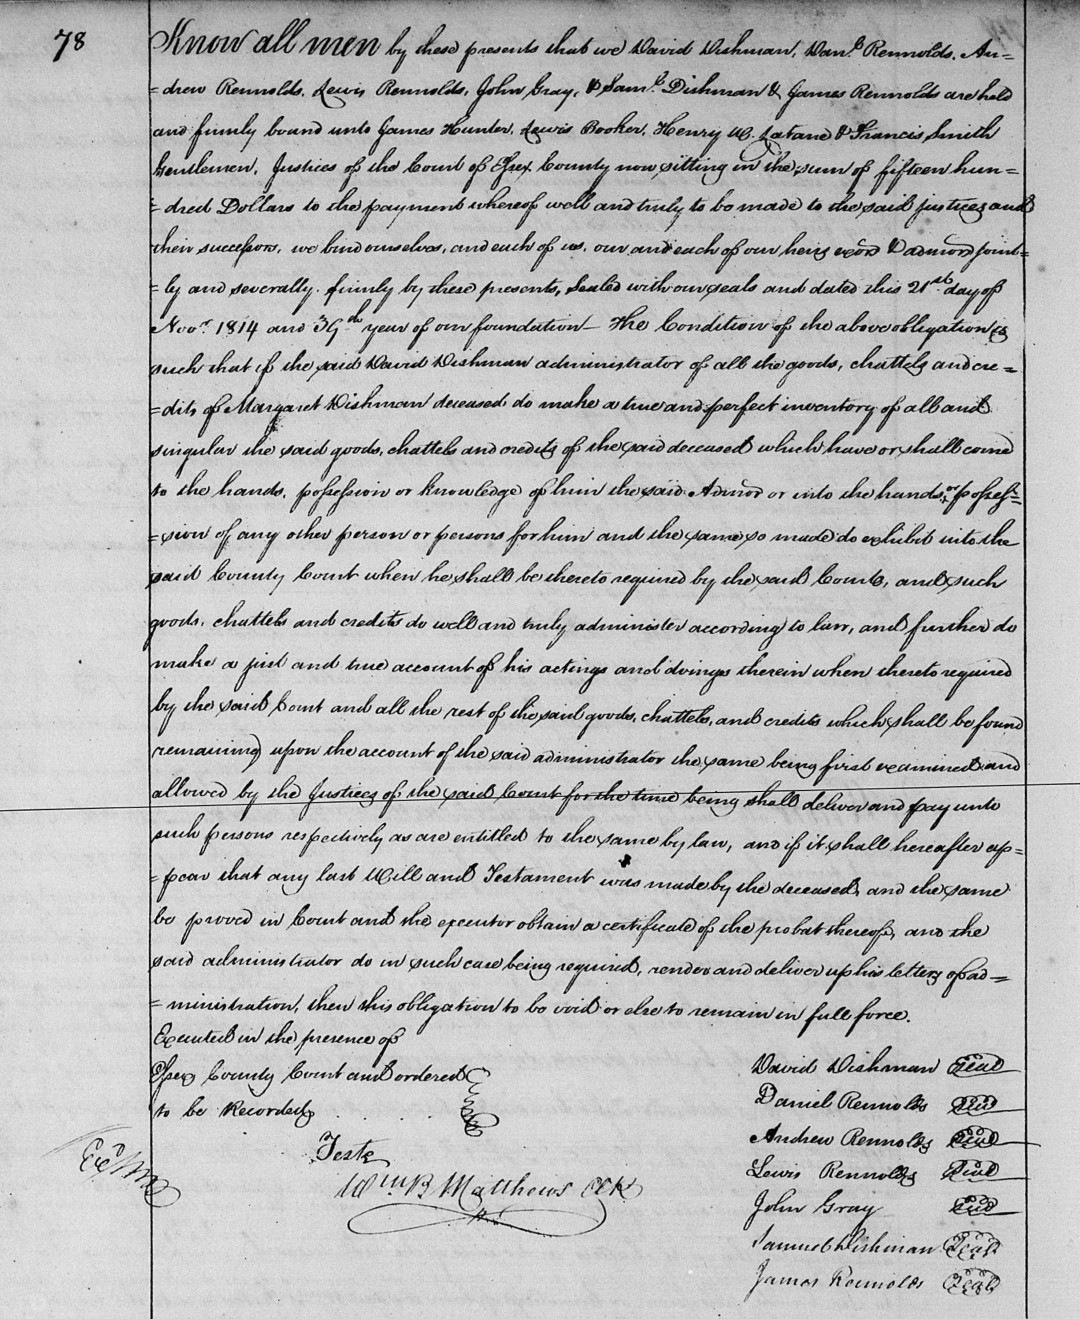 78
Know all men by these presents that we David Dishman, Danl. Rennolds, An=
=drew Rennolds, Lewis Rennolds, John Gray, & Saml. Dishman & James Rennolds are held
and firmly bound unto James Hunter, Lewis Booker, Henry W. Latane & Francis Smith
Gentlemen, Justices of the Court of Essex County now sitting in the sum of fifteen hun=
=dred Dollars to the payment whereof well and truly to be made to the said justices and
their successors, we bind ourselves, and each of us, our and each of our heirs exors & admors joint=
=ly and severally firmly by these presents, Sealed with our seals and dated this 21st day of
Novr. 1814 and 39th year of our foundation — The Condition of the above obligation is
such that if the said David Dishman administrator of all the goods, chattels and cre=
=dits of Margaret Dishman deceased do make a true and perfect inventory of all and
singular the said goods, chattels and credits of the said deceased which have or shall come
to the hands, possession or knowledge of him the said Admor or into the hands or posses=
=sion of any other person or persons for him and the same so made do exhibit into the
said County Court when he shall be thereto required by the said Court, and such
goods, chattels and credits do well and truly administer according to law, and further do
make a just and true account of his actings and doings therein when thereto required
by the said Court and all the rest of the said goods, chattels, and credits which shall be found
remaining upon the account of the said administrator the same being first examined and
allowed by the Justices of the said Court for the time being shall deliver and pay unto
such persons respectively as are entitled to the same by law, and if it shall hereafter ap=
=pear that any last Will and Testament was made by the deceased, and the same
be proved in Court and the executor obtain a certificate of the probat thereof, and the
said administrator do in such case being required, render and deliver up his letters of ad=
=ministration, then this obligation to be void or else to remain in full force.
Executed in the presence of
Essex County Court and ordered
to be Recorded
Teste
Wm B Matthews Clk
David Dishman Seal
Daniel Rennolds Seal
Andrew Rennolds Seal
Lewis Rennolds Seal
John Gray Seal
Samuel Dishman Seal
James Rennolds Seal